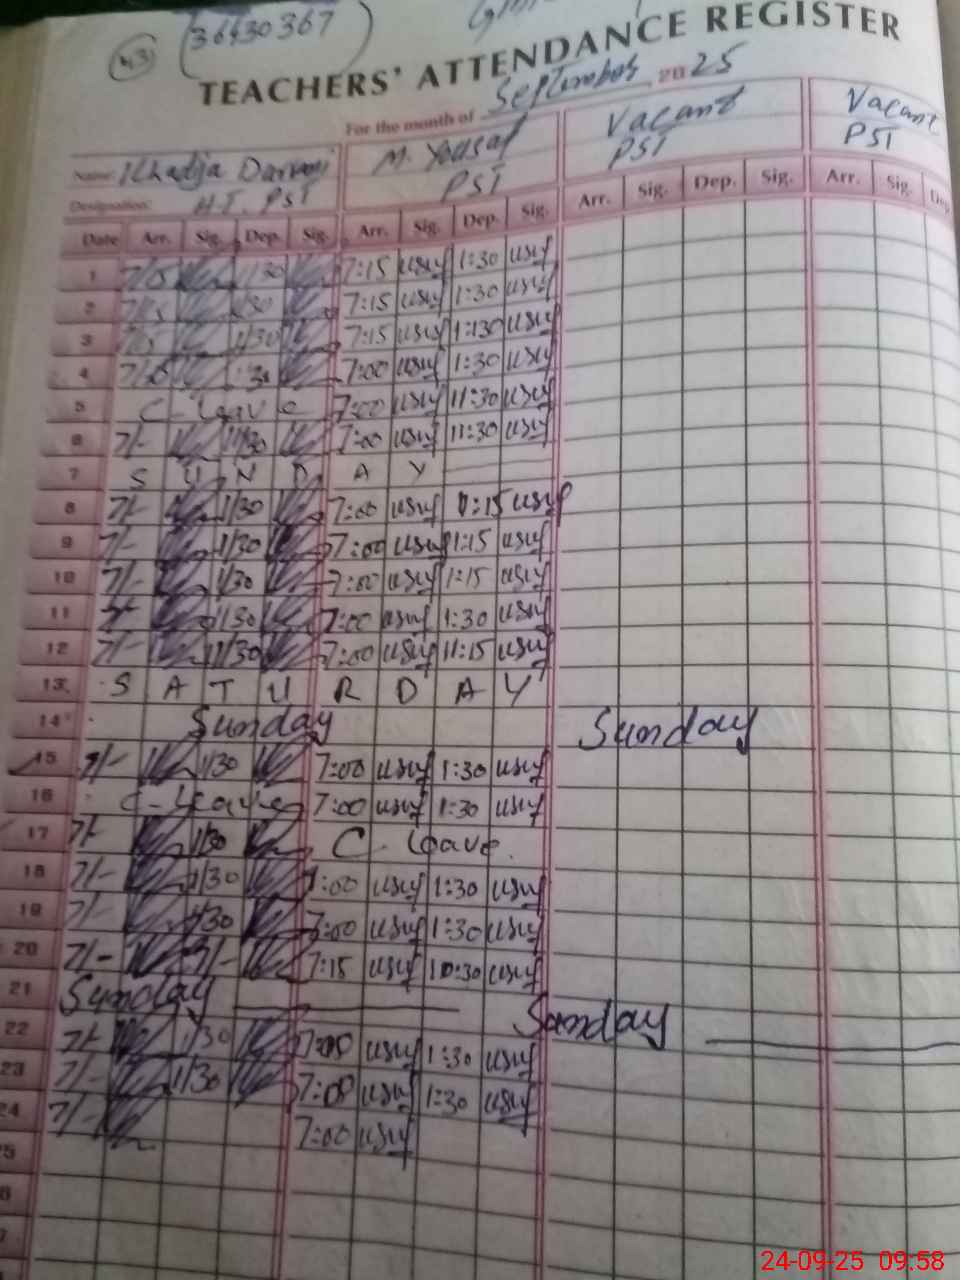 43 (36430367)
TEACHERS' ATTENDANCE REGISTER
For the month of September 2025
Name: Khadija M. Yousaf Vacant Vacant
Designation: H.T. PST PST PST PST
Date Arr. Sig. Dep. Sig. Arr. Sig. Dep. Sig. Arr. Sig. Dep. Sig. Arr. Sig. Dep
1 7/15 1/30 7:15 usuf 1:30 usuf
2 7/15 1/30 7:15 usuf 1:30 usuf
3 7/15 1/30 7:15 usuf 1:130 usuf
4 1:30 7:00 usuf 1:30 usuf
5 C-Leave 7:00 usuf 11:30 usuf
6 7/- 11/30 7:00 usuf 11:30 usuf
7 S U N D A Y
8 7/- 1/30 7:00 usuf 1:15 usuf
9 7/- 1/30 7:00 usuf 1:15 usuf
10 7/- 1/30 7:00 usuf 1:15 usuf
11 7/- 1/30 7:00 usuf 1:30 usuf
12 7/- 11/30 7:00 usuf 11:15 usuf
13 S A T U R D A Y
14 Sunday Sunday
15 7/- 1/30 7:00 usuf 1:30 usuf
16 C-Leave 7:00 usuf 1:30 usuf
17 7/- 1/30 C. Leave.
18 7/- 1/30 7:00 usuf 1:30 usuf
19 7/- 1/30 7:00 usuf 1:30 usuf
20 7/- 7/- 7:15 usuf 10:30 usuf
21 Sunday Sunday
22 7/- 1/30 7:00 usuf 1:30 usuf
23 7/- 1/30 7:08 usuf 1:30 usuf
24 7/- 7:00 usuf
25
6
7
24-09-25 09:58